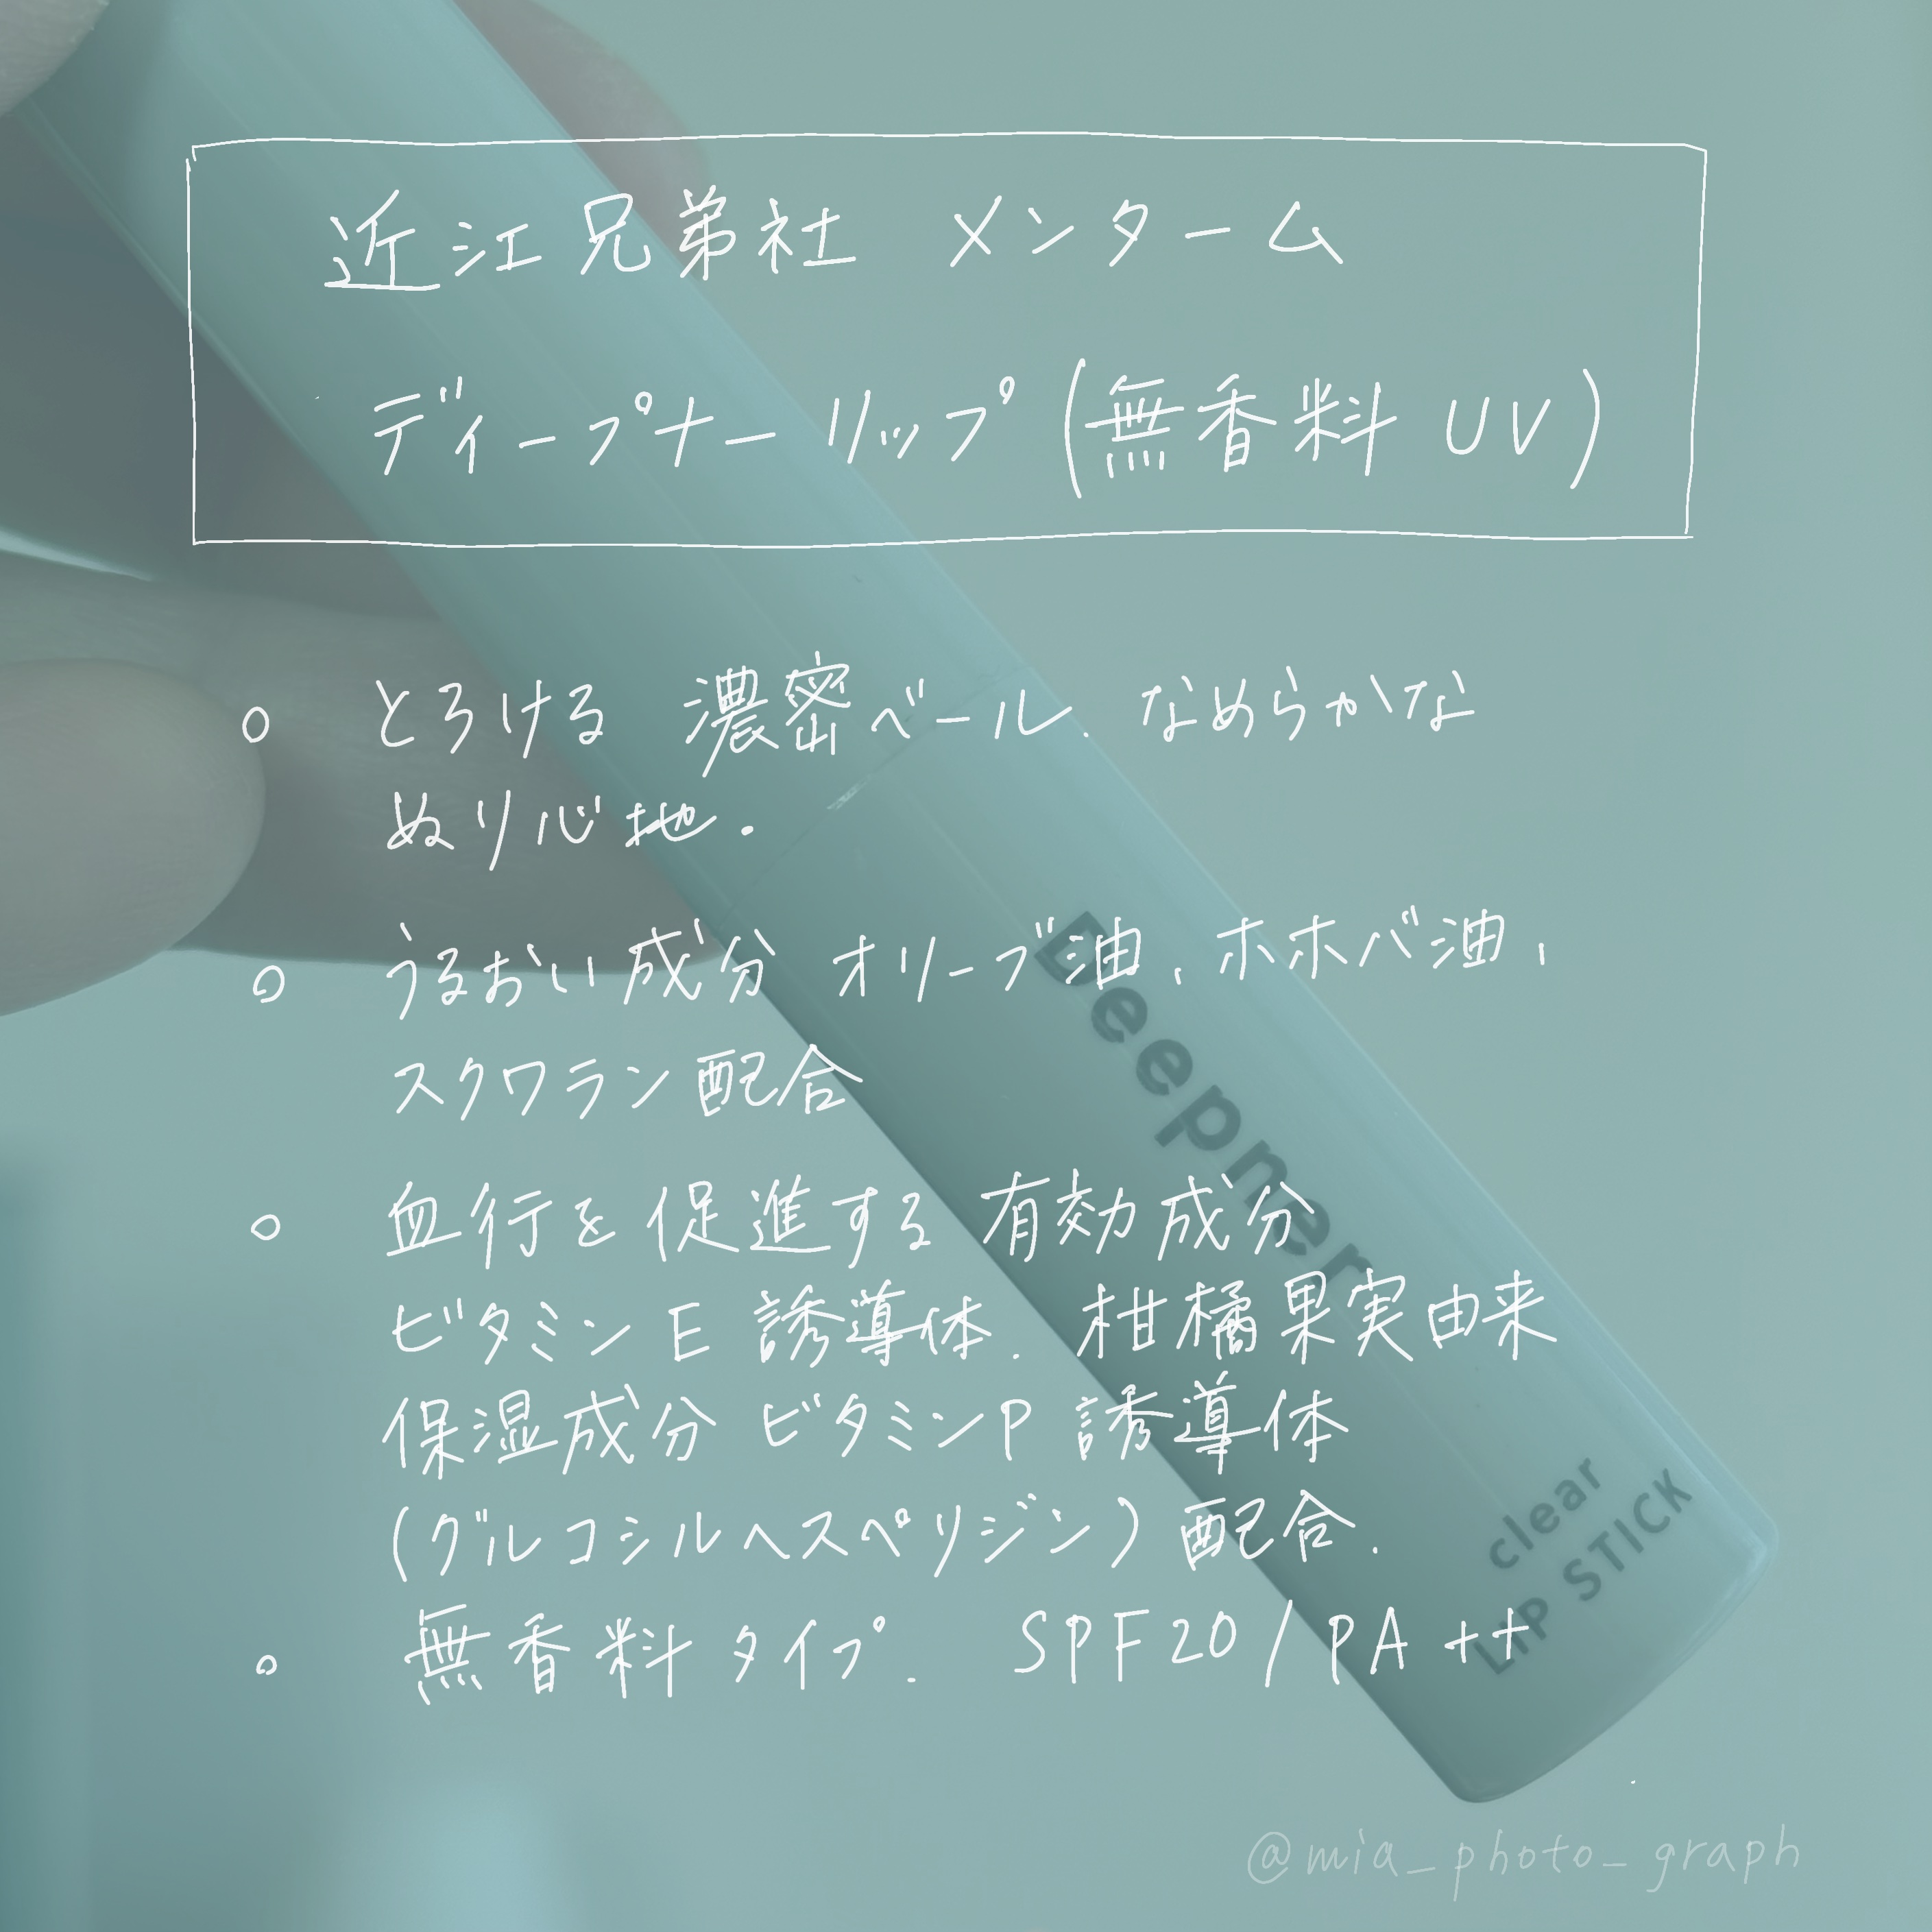 近江兄弟社 メンターム
ディープナーリップ(無香料UV)
○ とろける濃密ベール、なめらかな
ぬり心地.
○ うるおい成分 オリーブ油、ホホバ油、
スクワラン配合
○ 血行を促進する有効成分
ビタミンE誘導体. 柑橘果実由来
保湿成分 ビタミンP誘導体
(グルコシルヘスペリジン)配合.
○ 無香料タイプ. SPF20/PA++
Deepner
clear
LIP STICK
@mia_photo_graph